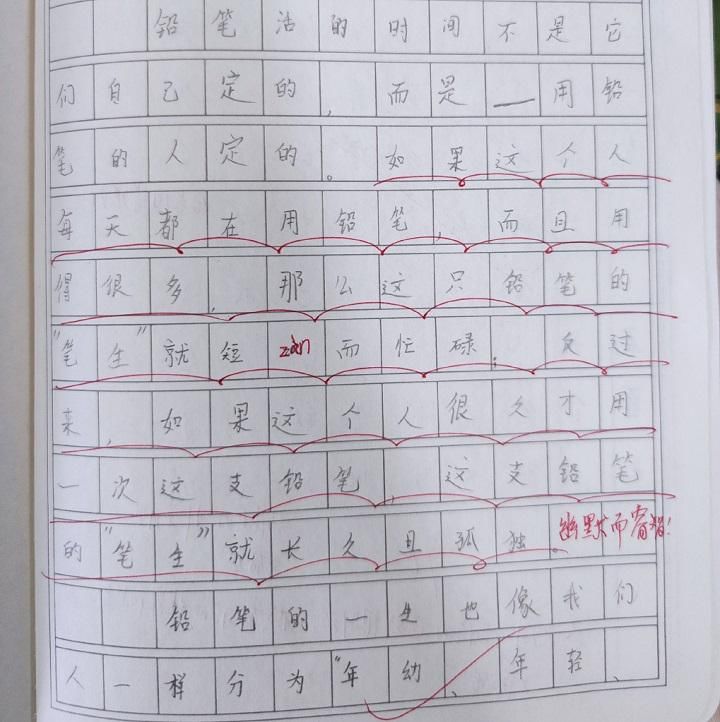 铅笔活的时间不是它
们自己定的，而是——用铅
笔的人定的。如果这个人
每天都在用铅笔，而且用
得很多，那么这只铅笔的
“笔生”就短zàn而忙碌；反过
来，如果这个人很久才用
一次这支铅笔，这支铅笔
的“笔生”就长久且孤独。幽默而睿智！
铅笔的一生也像我们
人一样分为“年幼、年轻、